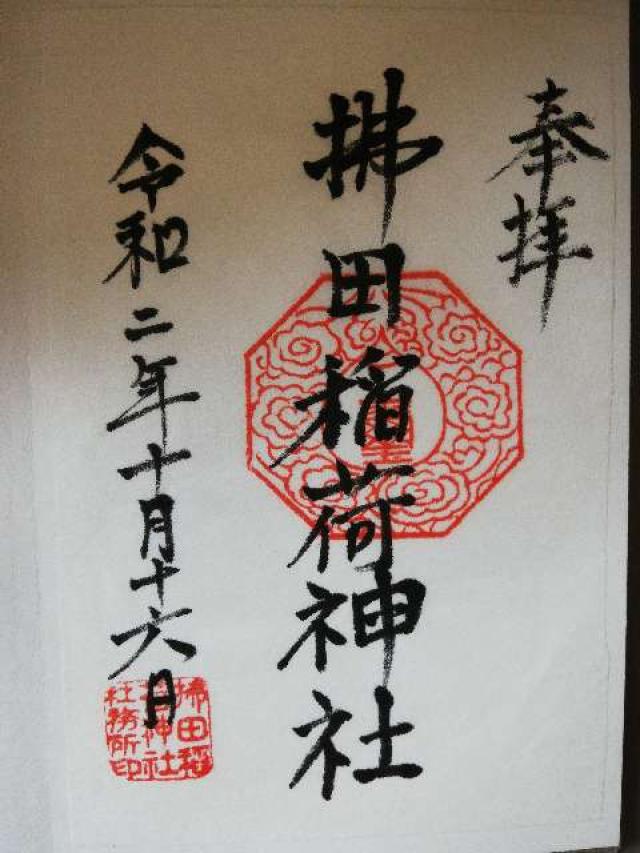 奉拝
拂田稲荷神社
令和二年十月十六日
拂田稲
荷神社
社務所印